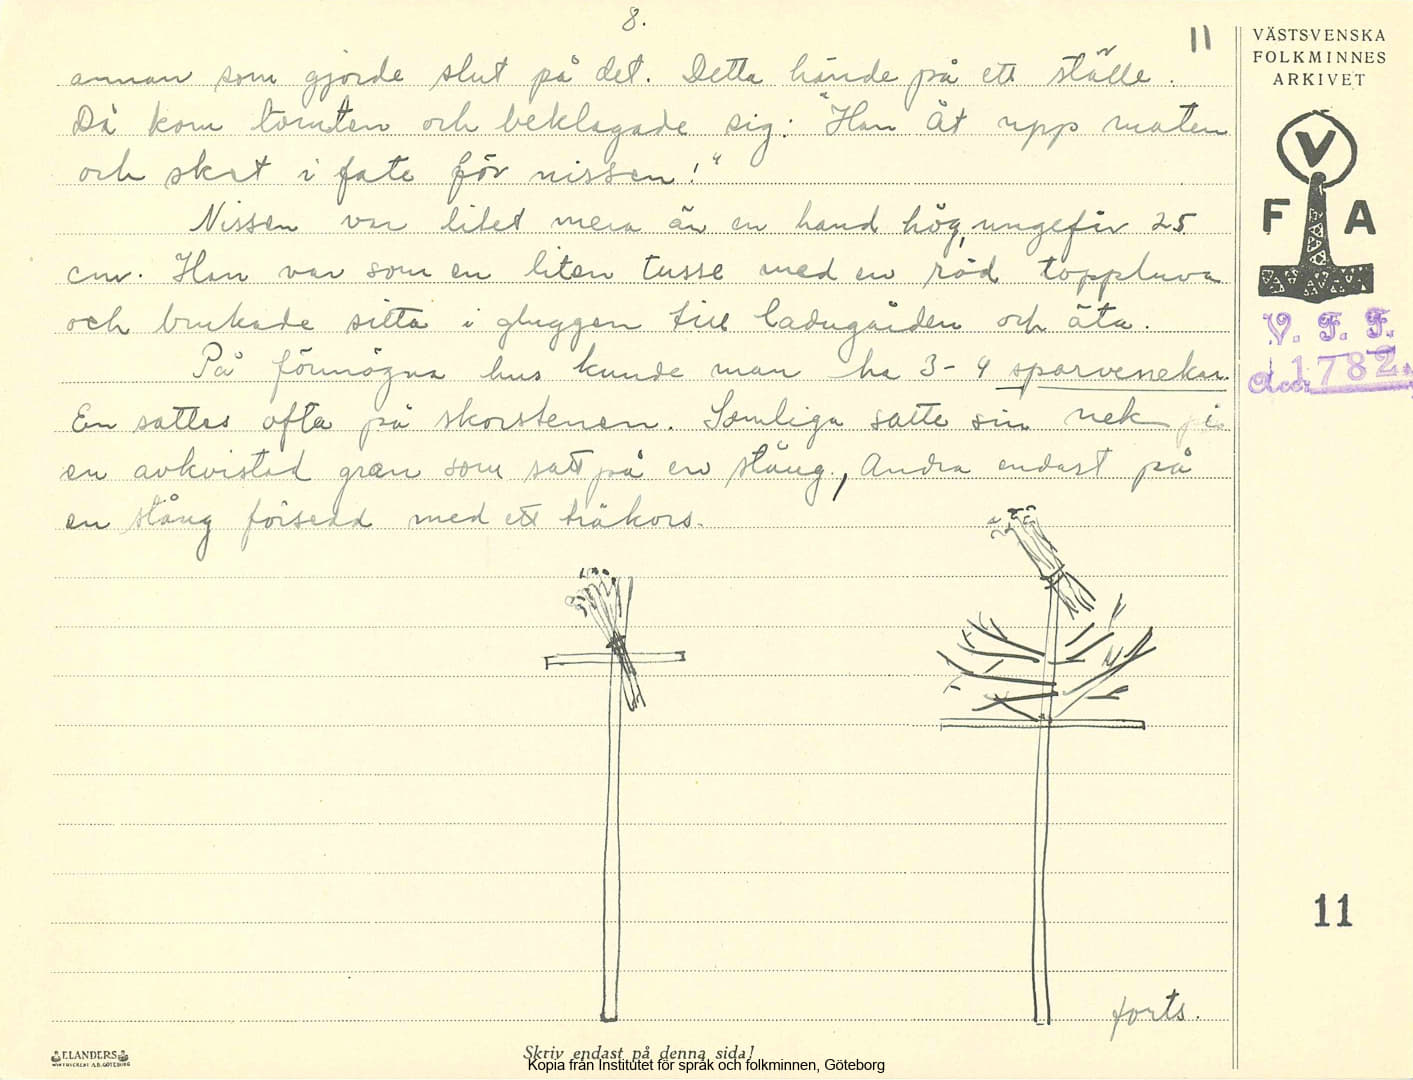 8.
11
annan som gjorde slut på det. Detta hände på ett ställe.
Då kom tomten och beklagade sig: "Han åt upp maten
och sket i fate för nissen!"
Nissen var litet mera än en hand hög, ungefär 25
cm. Han var som en liten tusse med en röd toppluva
och brukade sitta i gluggen till ladugården och äta.
På förmögna hus kunde man ha 3-4 sparvenekar.
En sattes ofta på skorstenen. Somliga satte sin nek på
en avkvistad gran som satt på en stång, Andra endast på
en stång försedd med ett träkors.
forts.
VÄSTSVENSKA
FOLKMINNES
ARKIVET
V
F A
V. F. F.
Acc. 1782.
11
ELANDERS
Skriv endast på denna sida!
Kopia från Institutet för språk och folkminnen, Göteborg